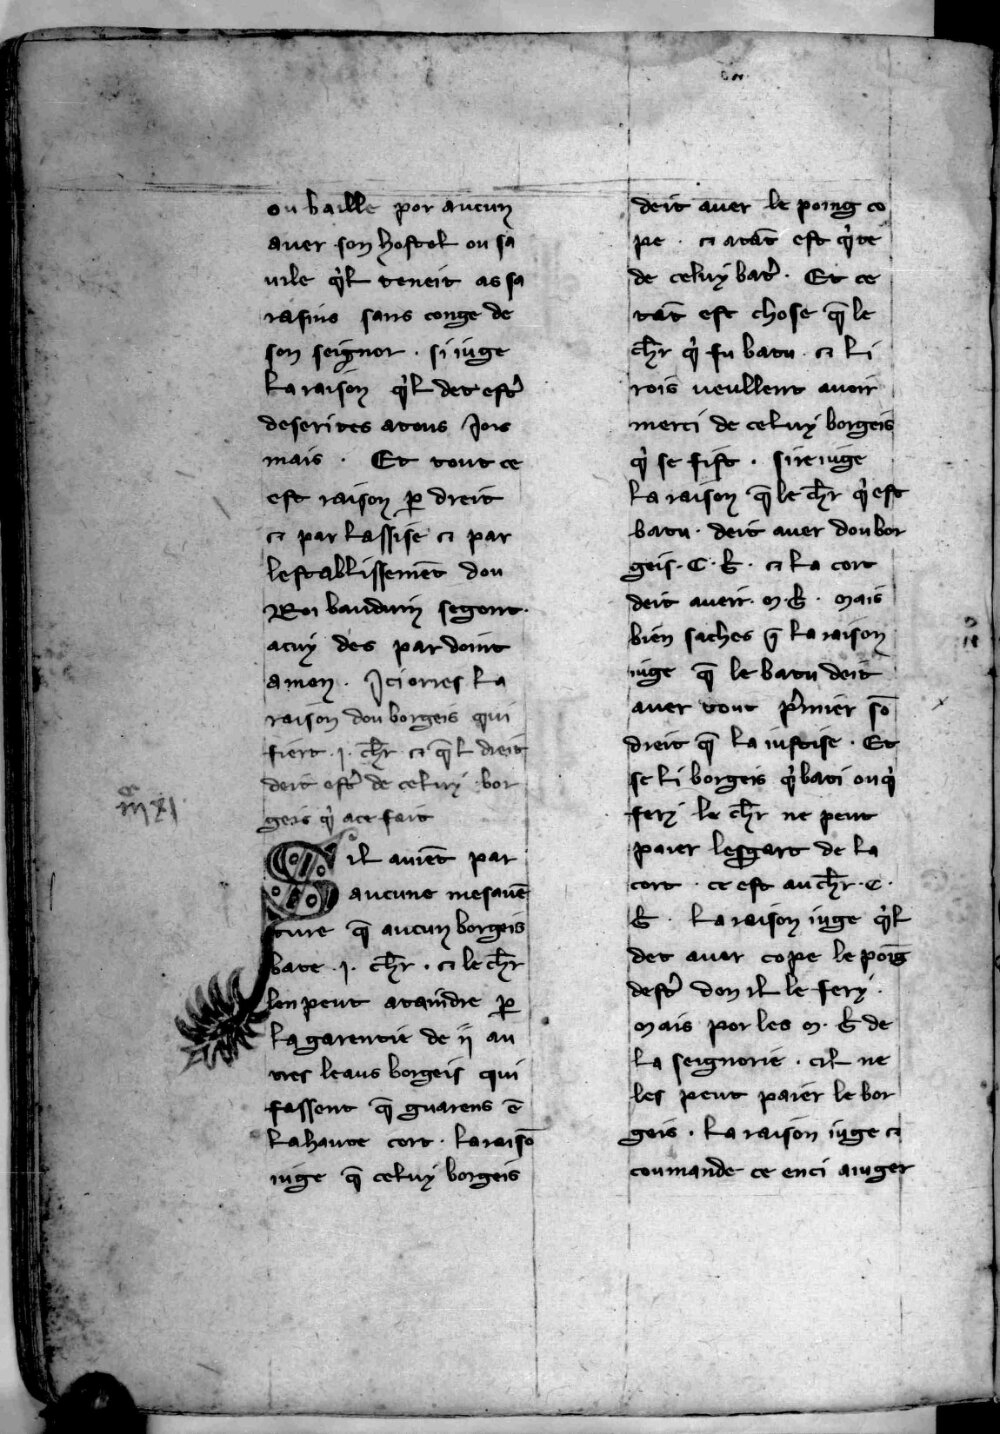 ou baille por aucun
auer son hostel ou sa
uile q̇l teneit as sa
rasins sans conge de
son seignor . si iuge
la raison q̇l det estr̉
deserites atous Jors
mais . Et tout ce
est raison ꝑ dreit
⁊ par lassise ⁊ par
lestablissemēt dou
Roi bauduin segont .
acuy des pardoint
amon . Jci orres la
raison dou borgeis qui
fiert .j. ch̅r . ⁊ q̄l dreit
doit estr̉ de celuy bor
geis q̇ ace fait
Sil auiēt par
aucune mesauē
ture q̄ aucun borgeis
bate .j. ch̅r . ⁊ le ch̅r
len peut ataindre ꝑ
la garentie de ij au
tres leaus borgeis qui
fassent q̄ guarens ē
la haute cort . la raisō
iuge q̄ celuy borgeis
deit auer le poing co
pe . ⁊ atāt est q̇te
de celuy batr̉ . Et ce
tāt est chose q̄ le
ch̅r q̇ fu batu . ⁊ li
rois ueullent auoir
merci de celuy borgeis
q̇ se fist . si re iuge
la raison q̄ le ch̅r q̇ est
batu . deit auer dou bor
geis . C . b̅ . ⁊ la cort
deit aueir . m . b̅ . Mais
bien saches q̄ la raison
iuge q̄ le batu deit
auer tout pr̉mier sō
dreit q̄ la iustise . Et
se li borgeis q̇ bati ou q̇
fery le ch̅r ne peut
paier lesgart de la
cort . ce est au ch̅r . C .
b̅ . la raison iuge q̇l
det auer cope le poīg
destr̉ don il le fery .
Mais por les m . b̅ de
la seignorie . cil ne
les peut paier le bor
geis . la raison iuge ⁊
coumande ce enci aiuger